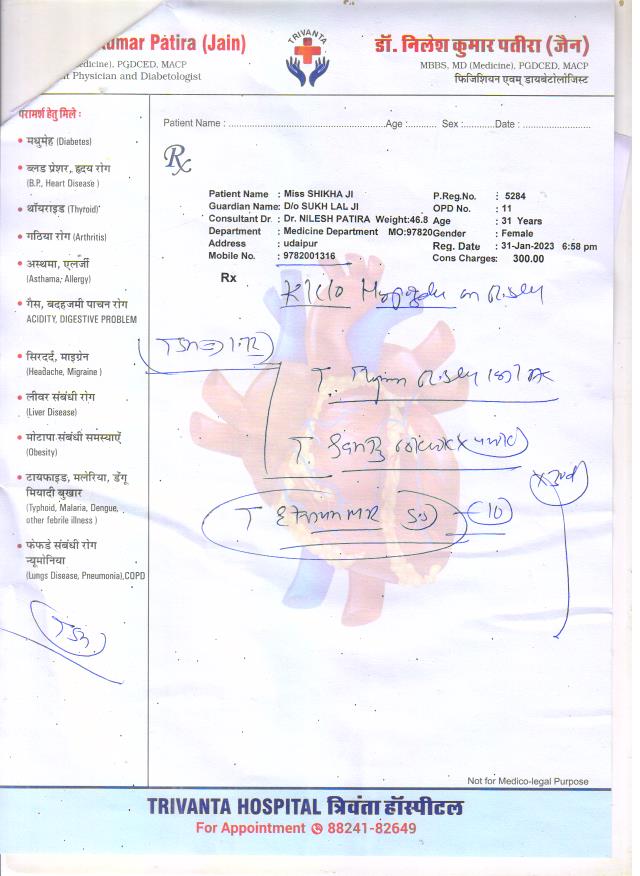 umar Patira (Jain)
edicine), PGDCED, MACP
t Physician and Diabetologist
TRIVANTA
डॉ. निलेश कुमार पतीरा (जैन)
MBBS, MD (Medicine), PGDCED, MACP
फिजिशियन एवम् डायबेटोलॉजिस्ट
परामर्श हेतु मिले :
• मधुमेह (Diabetes)
• ब्लड प्रेशर, हृदय रोग
(B.P., Heart Disease )
• थॉयराइड (Thyroid)
• गठिया रोग (Arthritis)
• अस्थमा, एलर्जी
(Asthama, Allergy)
• गैस, बदहजमी पाचन रोग
ACIDITY, DIGESTIVE PROBLEM
• सिरदर्द, माइग्रेन
(Headache, Migraine )
• लीवर संबंधी रोग
(Liver Disease)
• मोटापा संबंधी समस्याएँ
(Obesity)
• टायफाइड, मलेरिया, डेंगू
मियादी बुखार
(Typhoid, Malaria, Dengue,
other febrile illness )
• फेफडे संबंधी रोग
न्यूमोनिया
(Lungs Disease, Pneumonia),COPD
Patient Name : ............Age :.......... Sex :..........Date : ............
Rx
Patient Name : Miss SHIKHA JI P.Reg.No. : 5284
Guardian Name: D/o SUKH LAL JI OPD No. : 11
Consultant Dr. : Dr. NILESH PATIRA Weight:46.8 Age : 31 Years
Department : Medicine Department MO:97820 Gender : Female
Address : udaipur Reg. Date : 31-Jan-2023 6:58 pm
Mobile No. : 9782001316 Cons Charges: 300.00
Rx
K/c/o
T
T.
T
(10)
Not for Medico-legal Purpose
TRIVANTA HOSPITAL त्रिवंता हॉस्पीटल
For Appointment 88241-82649